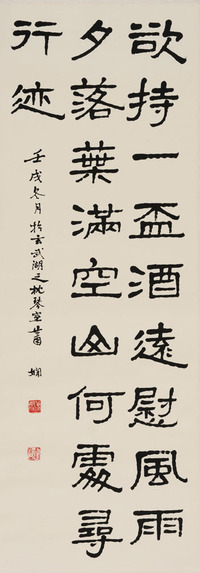 欲持一盃酒遠慰風雨
夕落葉滿空山何處尋
行迹
壬戌冬月於玄武湖之枕琴室蕭
嫻